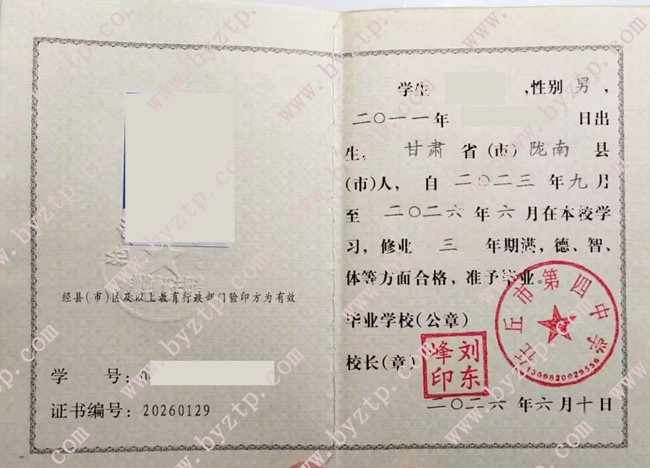 经县(市)区及以上教育行政部门验印方为有效
学 号：
证书编号：20260129
学生 ，性别 男，
二〇一一年 日出
生， 甘肃 省(市)陇南 县
(市)人，自 二〇二三 年九月
至 二〇二六 年 六 月在本校学
习，修业 三 年期满，德、智、
体等方面合格，准予毕业。
毕业学校(公章)
任丘市第四中学
校长(章)
刘东
烽印
二〇二六 年六月十日
www.byztp.com